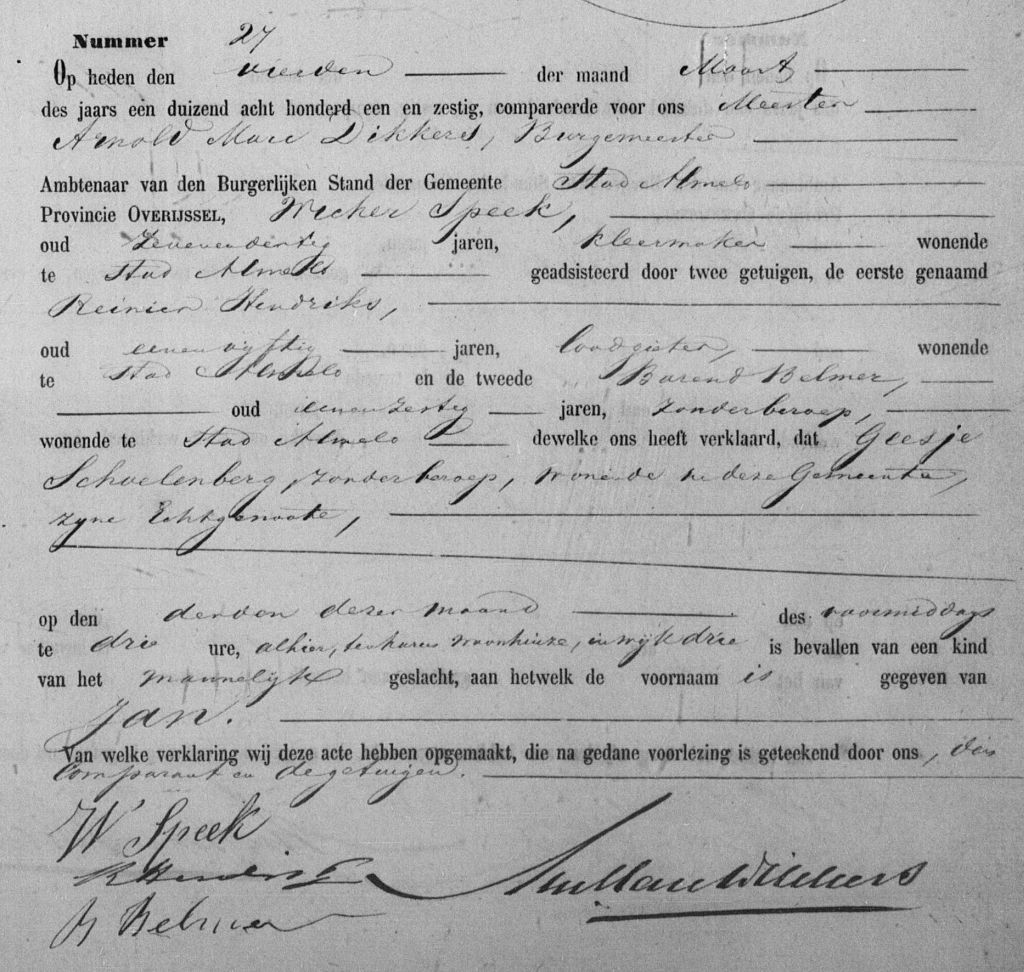 Nummer 27
Op heden den vierden der maand Maart
des jaars een duizend acht honderd een en zestig, compareerde voor ons Meester
Arnold Marc Dikkers, Burgemeester
Ambtenaar van den Burgerlijken Stand der Gemeente Stad Almelo
Provincie OVERIJSSEL, Wicher Speek,
oud zevenendertig jaren, kleermaker wonende
te Stad Almelo geadsisteerd door twee getuigen, de eerste genaamd
Reinier Hendriks,
oud eenenvyftig jaren, loodgieter, wonende
te Stad Almelo en de tweede Barend Belmer,
oud eenenzestig jaren, zonder beroep,
wonende te Stad Almelo dewelke ons heeft verklaard, dat Geesje
Schoelenberg, zonder beroep, wonende in deze Gemeente,
zyne Echtgenoote,
op den derden dezer maand des voormiddags
te drie ure, alhier, ten haren woonhuize, in wijk drie is bevallen van een kind
van het mannelyk geslacht, aan hetwelk de voornaam is gegeven van
Jan.
Van welke verklaring wij deze acte hebben opgemaakt, die na gedane voorlezing is geteekend door ons, den
Comparant en de getuigen.
W Speek
R Hendriks
B Belmer